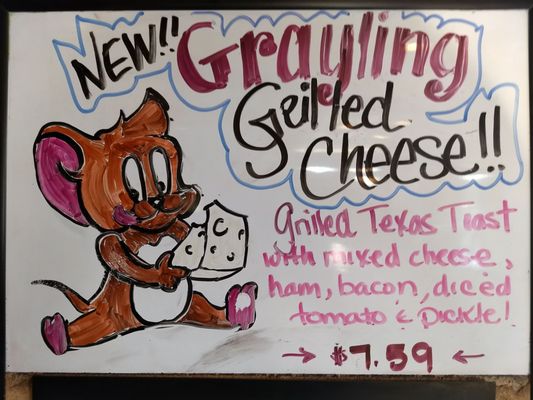 NEW!! Grayling
Grilled
Cheese!!
Grilled Texas Toast
with mixed cheese,
ham, bacon, diced
tomato & Pickle!
→ $7.59 ←